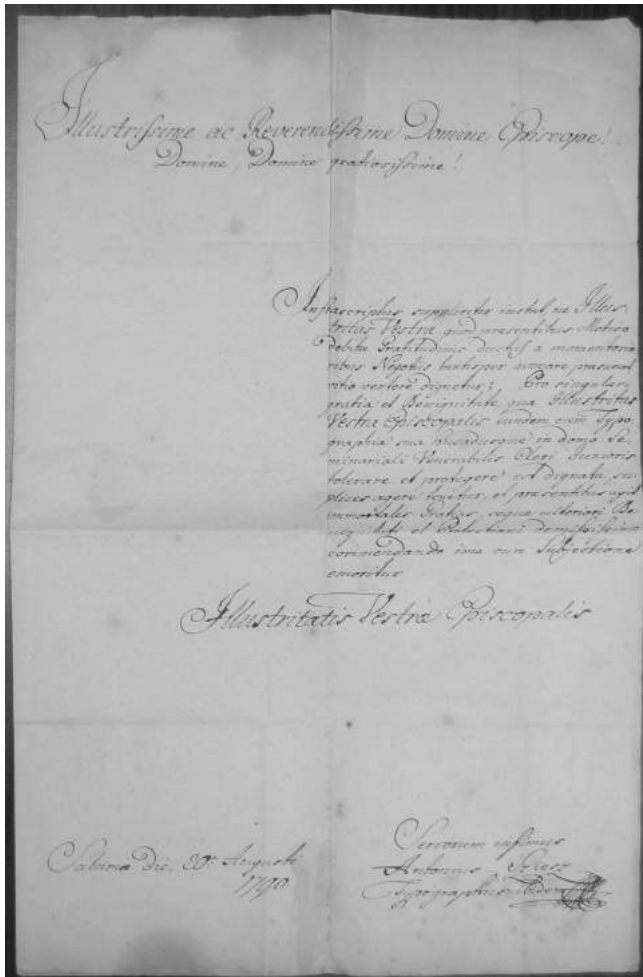 Illustrissime ac Reverendissime Domine Episcope!
Domine, Domine gratiosissime!
Infrascriptus suppliciter instat, ne Illus-
tritas Vestra quod præsentibus Motivo
debitæ Gratitudinis ductus a momentosio
ribus Negotiis tantisper avocare præsumat
vitio vertere dignetur; Pro singulari
gratia et Benignitate, qua Illustritas
Vestra Episcopalis eundem cum Typo
graphia sua in domo Se
minariali Venerabilis Cleri Junioris
tolerare et protegere est dignata, sup
plices agere tenetur, et præsentibus agit
immortales Gratias, seque ulteriori Be
nignitati et Protectioni demississime
commendando ima cum Subjectione
emoritur
Illustritatis Vestræ Episcopalis
Sabariæ Die 20a Augusti
1790
Servorum infimus
Antonius
Typographus ibidem